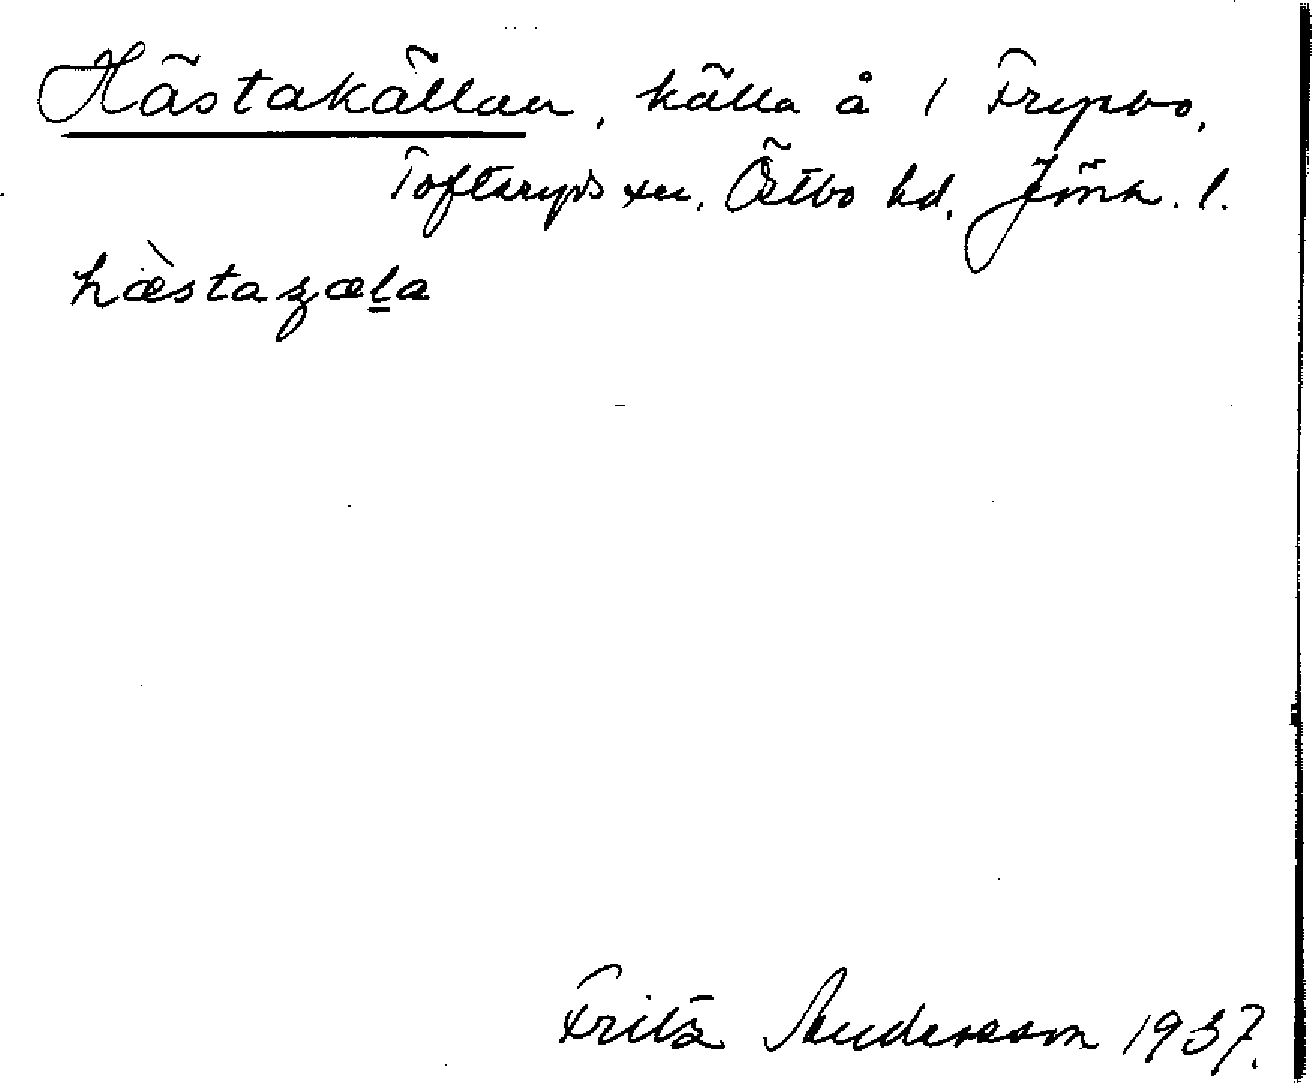 Hästakällan, källa å 1 Frypbo,
Tofteryds sn, Östbo hd, Jönk. l.
hæ̀staʓæl̲a
Fritz Andersson 1937.